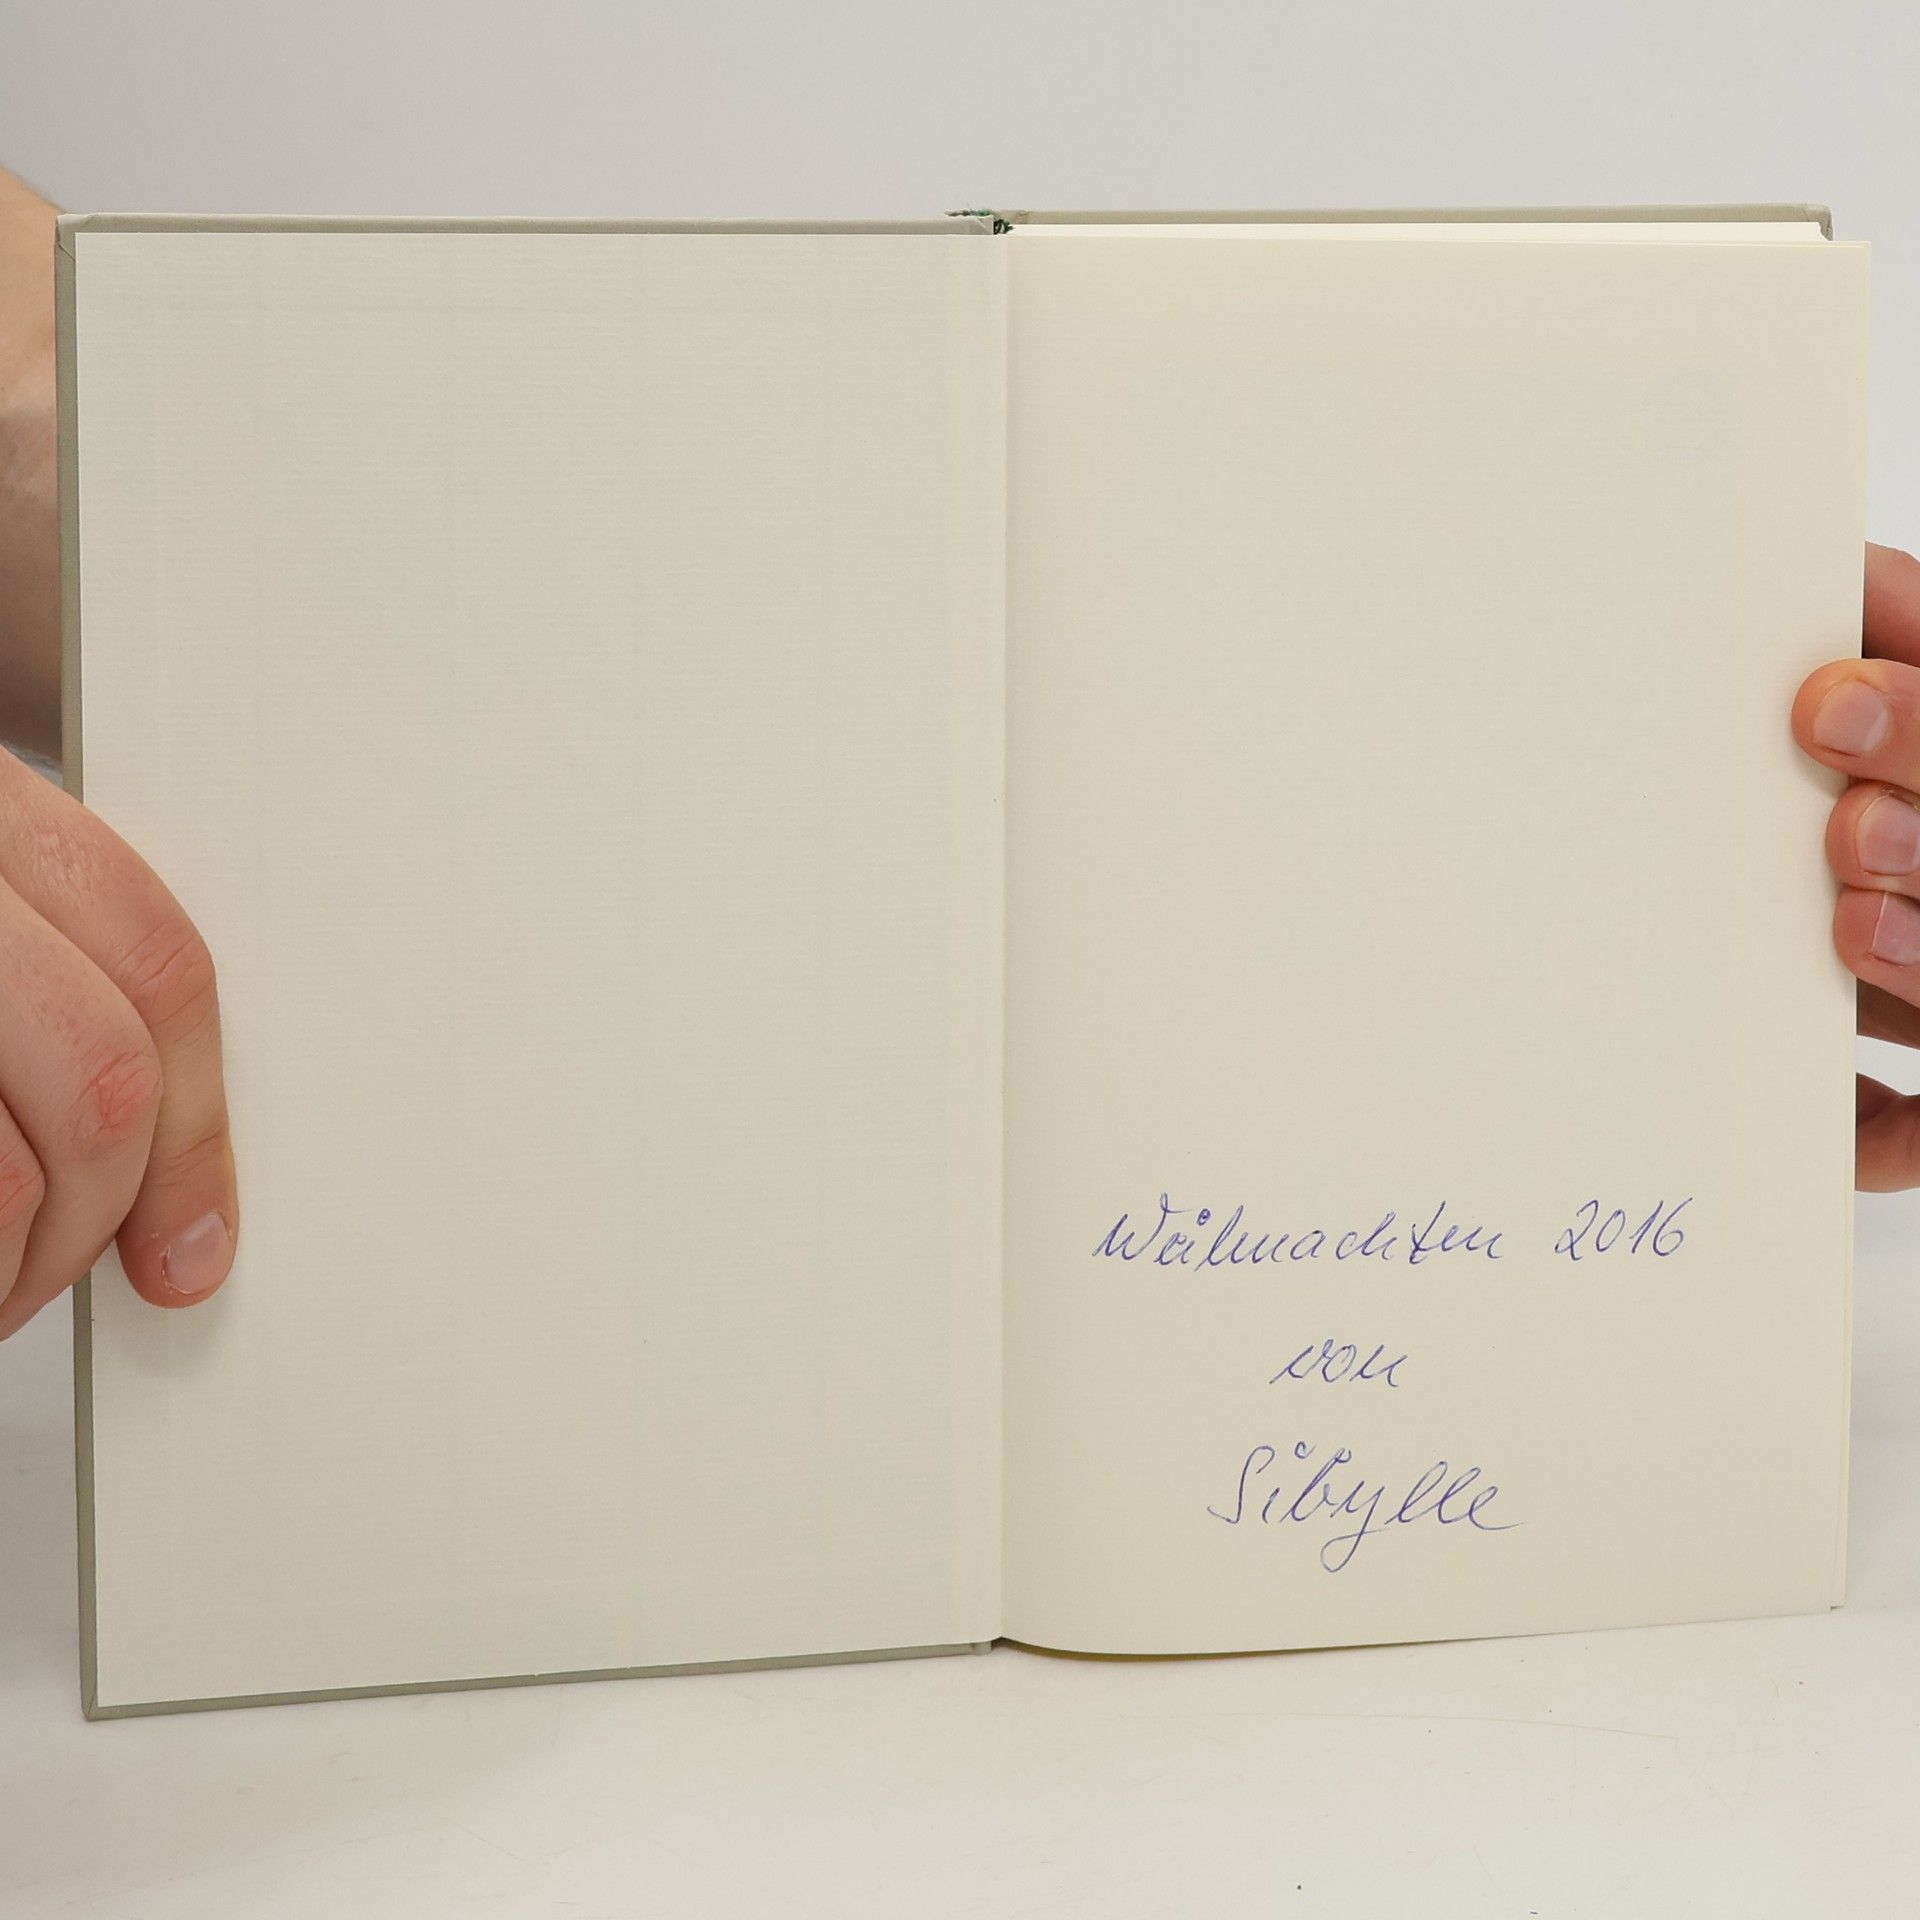 Weihnachten 2016
von
Sibylle